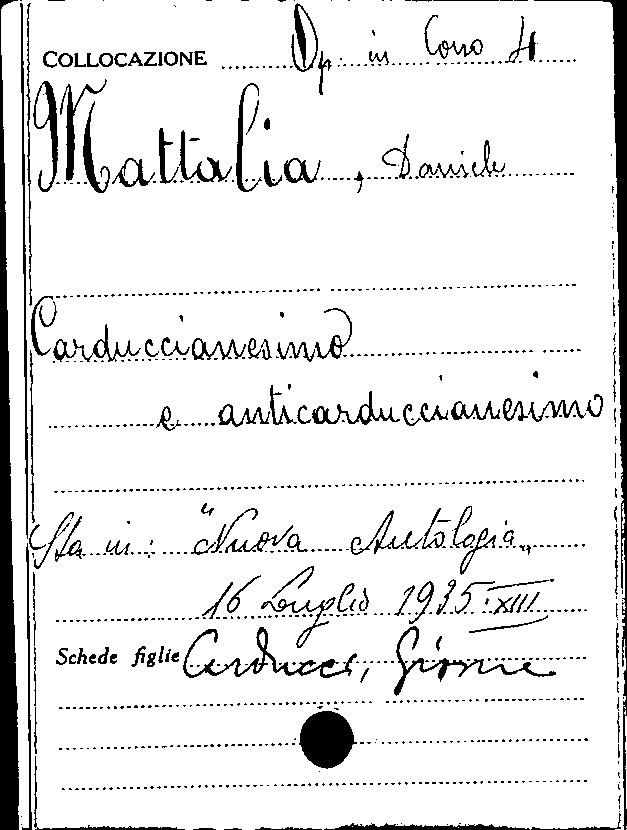 COLLOCAZIONE Op. in Corso 4
Mattalia, Daniele
Carduccianesimo
e anticarduccianesimo
Sta in: "Nuova Antologia„
16 Luglio 1935 XIII
Schede figlie Carducci, Giosue